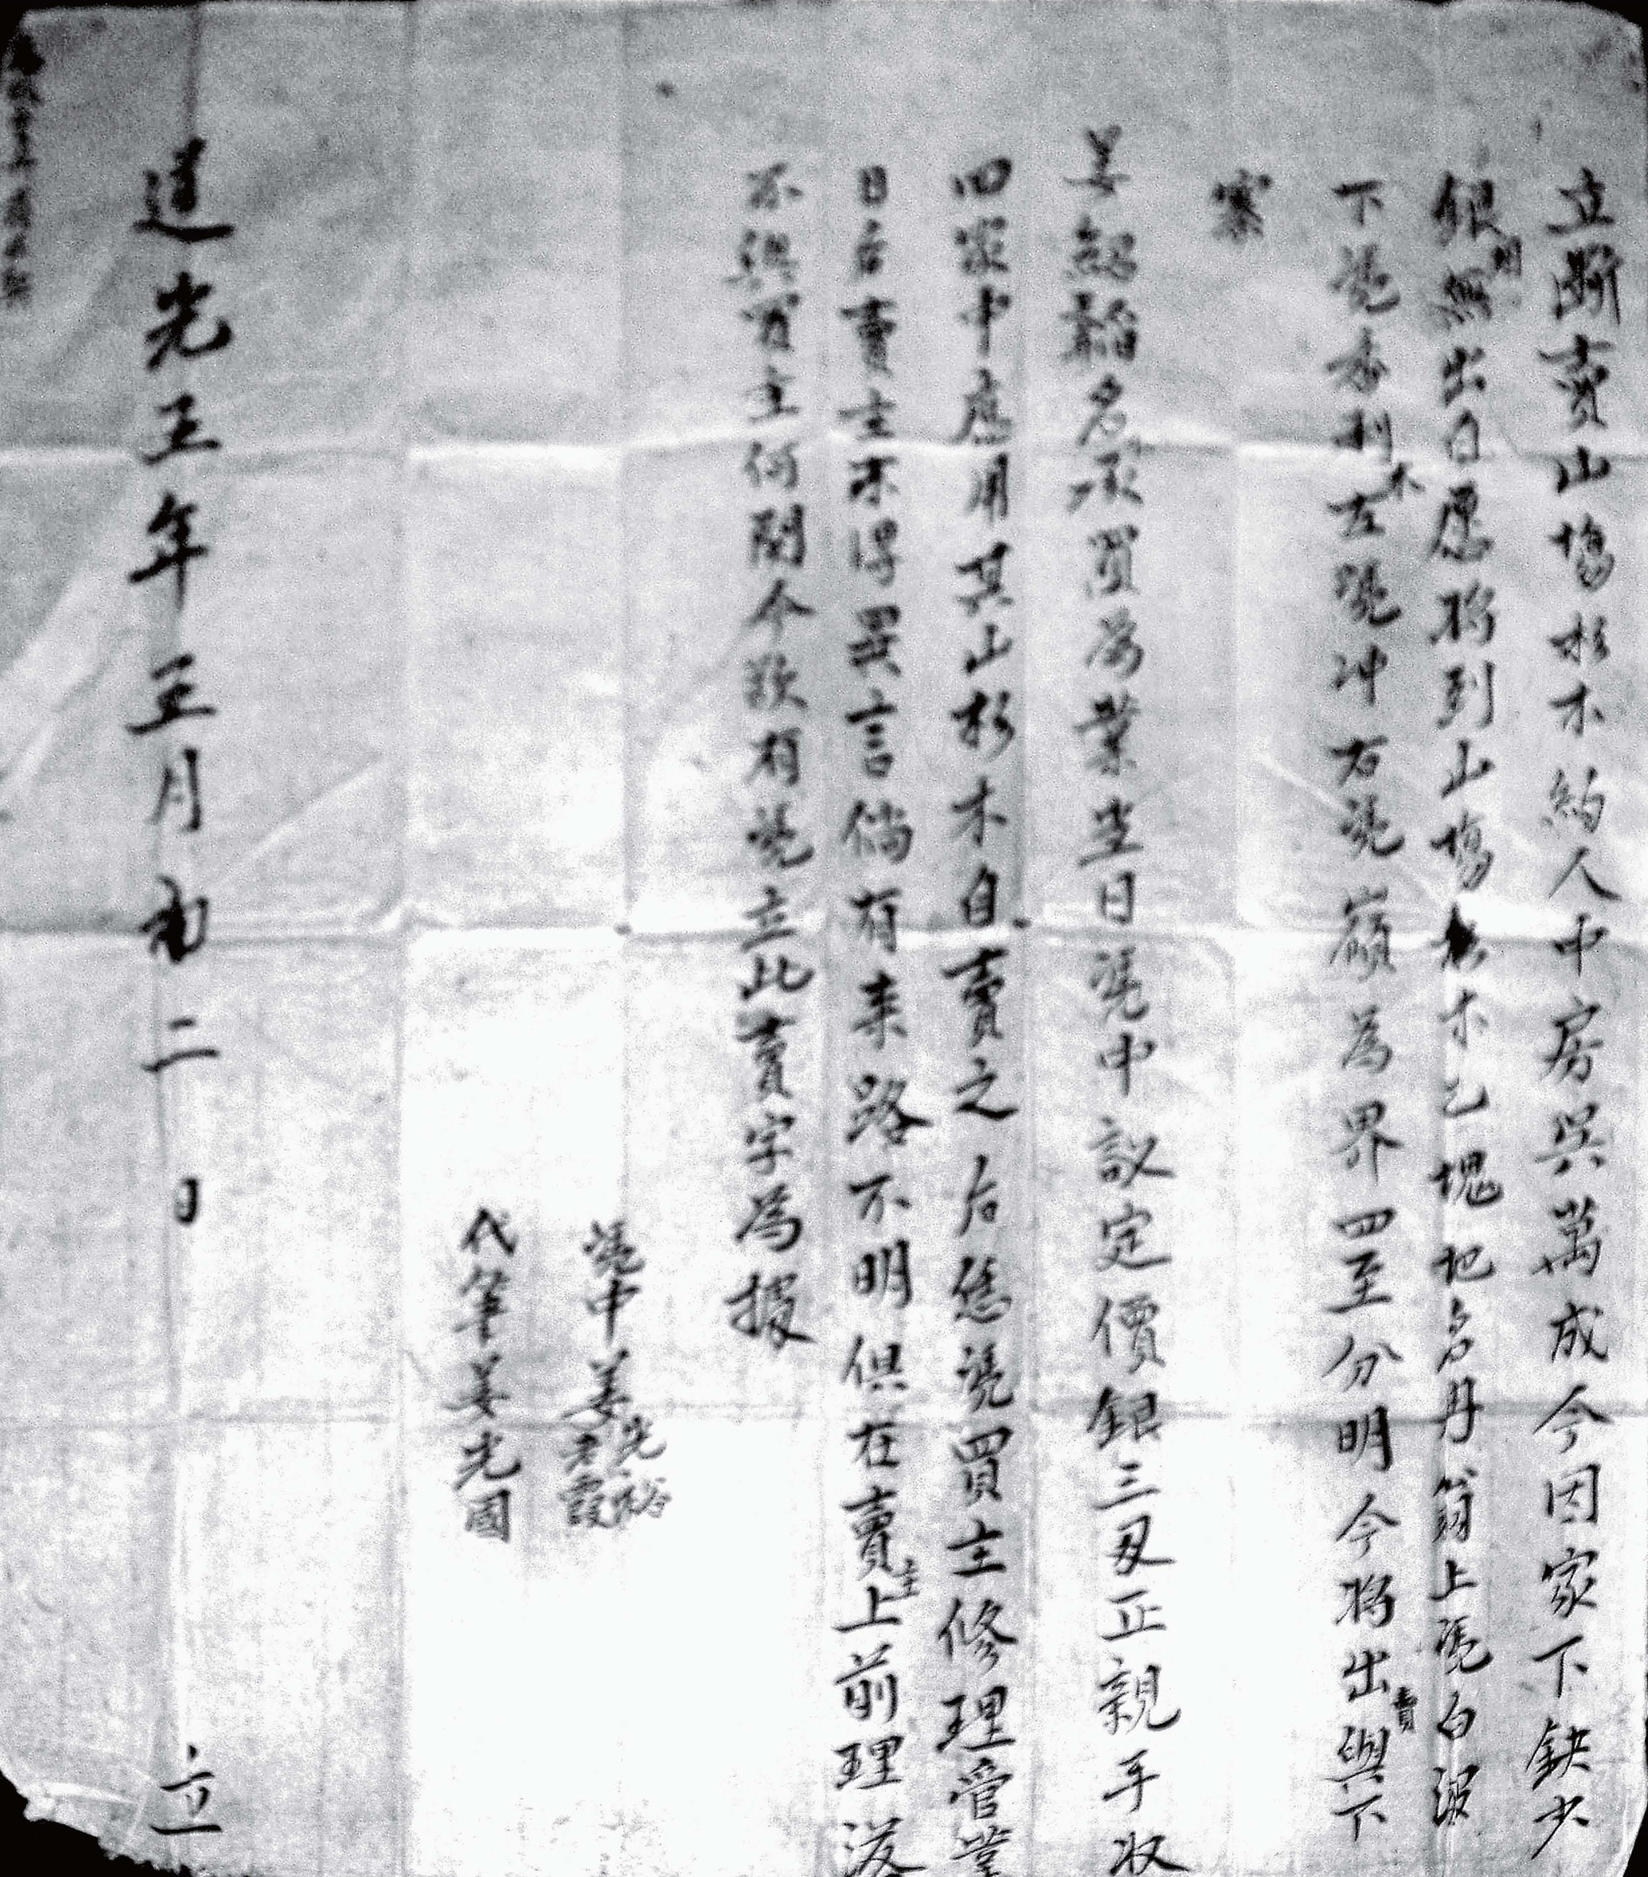 立斷賣山塲杉木約人中房吳萬成今因家下缺少
銀用無出自愿將到山塲杉木乙塊地名丹翁上凴白淚
下凴香利木左凴冲右凴嶺為界四至分明今將出賣與下
寨
姜紹韜名承買為業坐日凴中議定價銀三刄正親手收
回家中應用其山杉木自賣之后恁凴買主修理管業
日后賣主不得異言倘有来路不明俱在賣主上前理落
不與買主何関今欲有凴立此賣字為據
凴中姜先裕 老霞
代筆姜光國
道光三年三月初二日 立